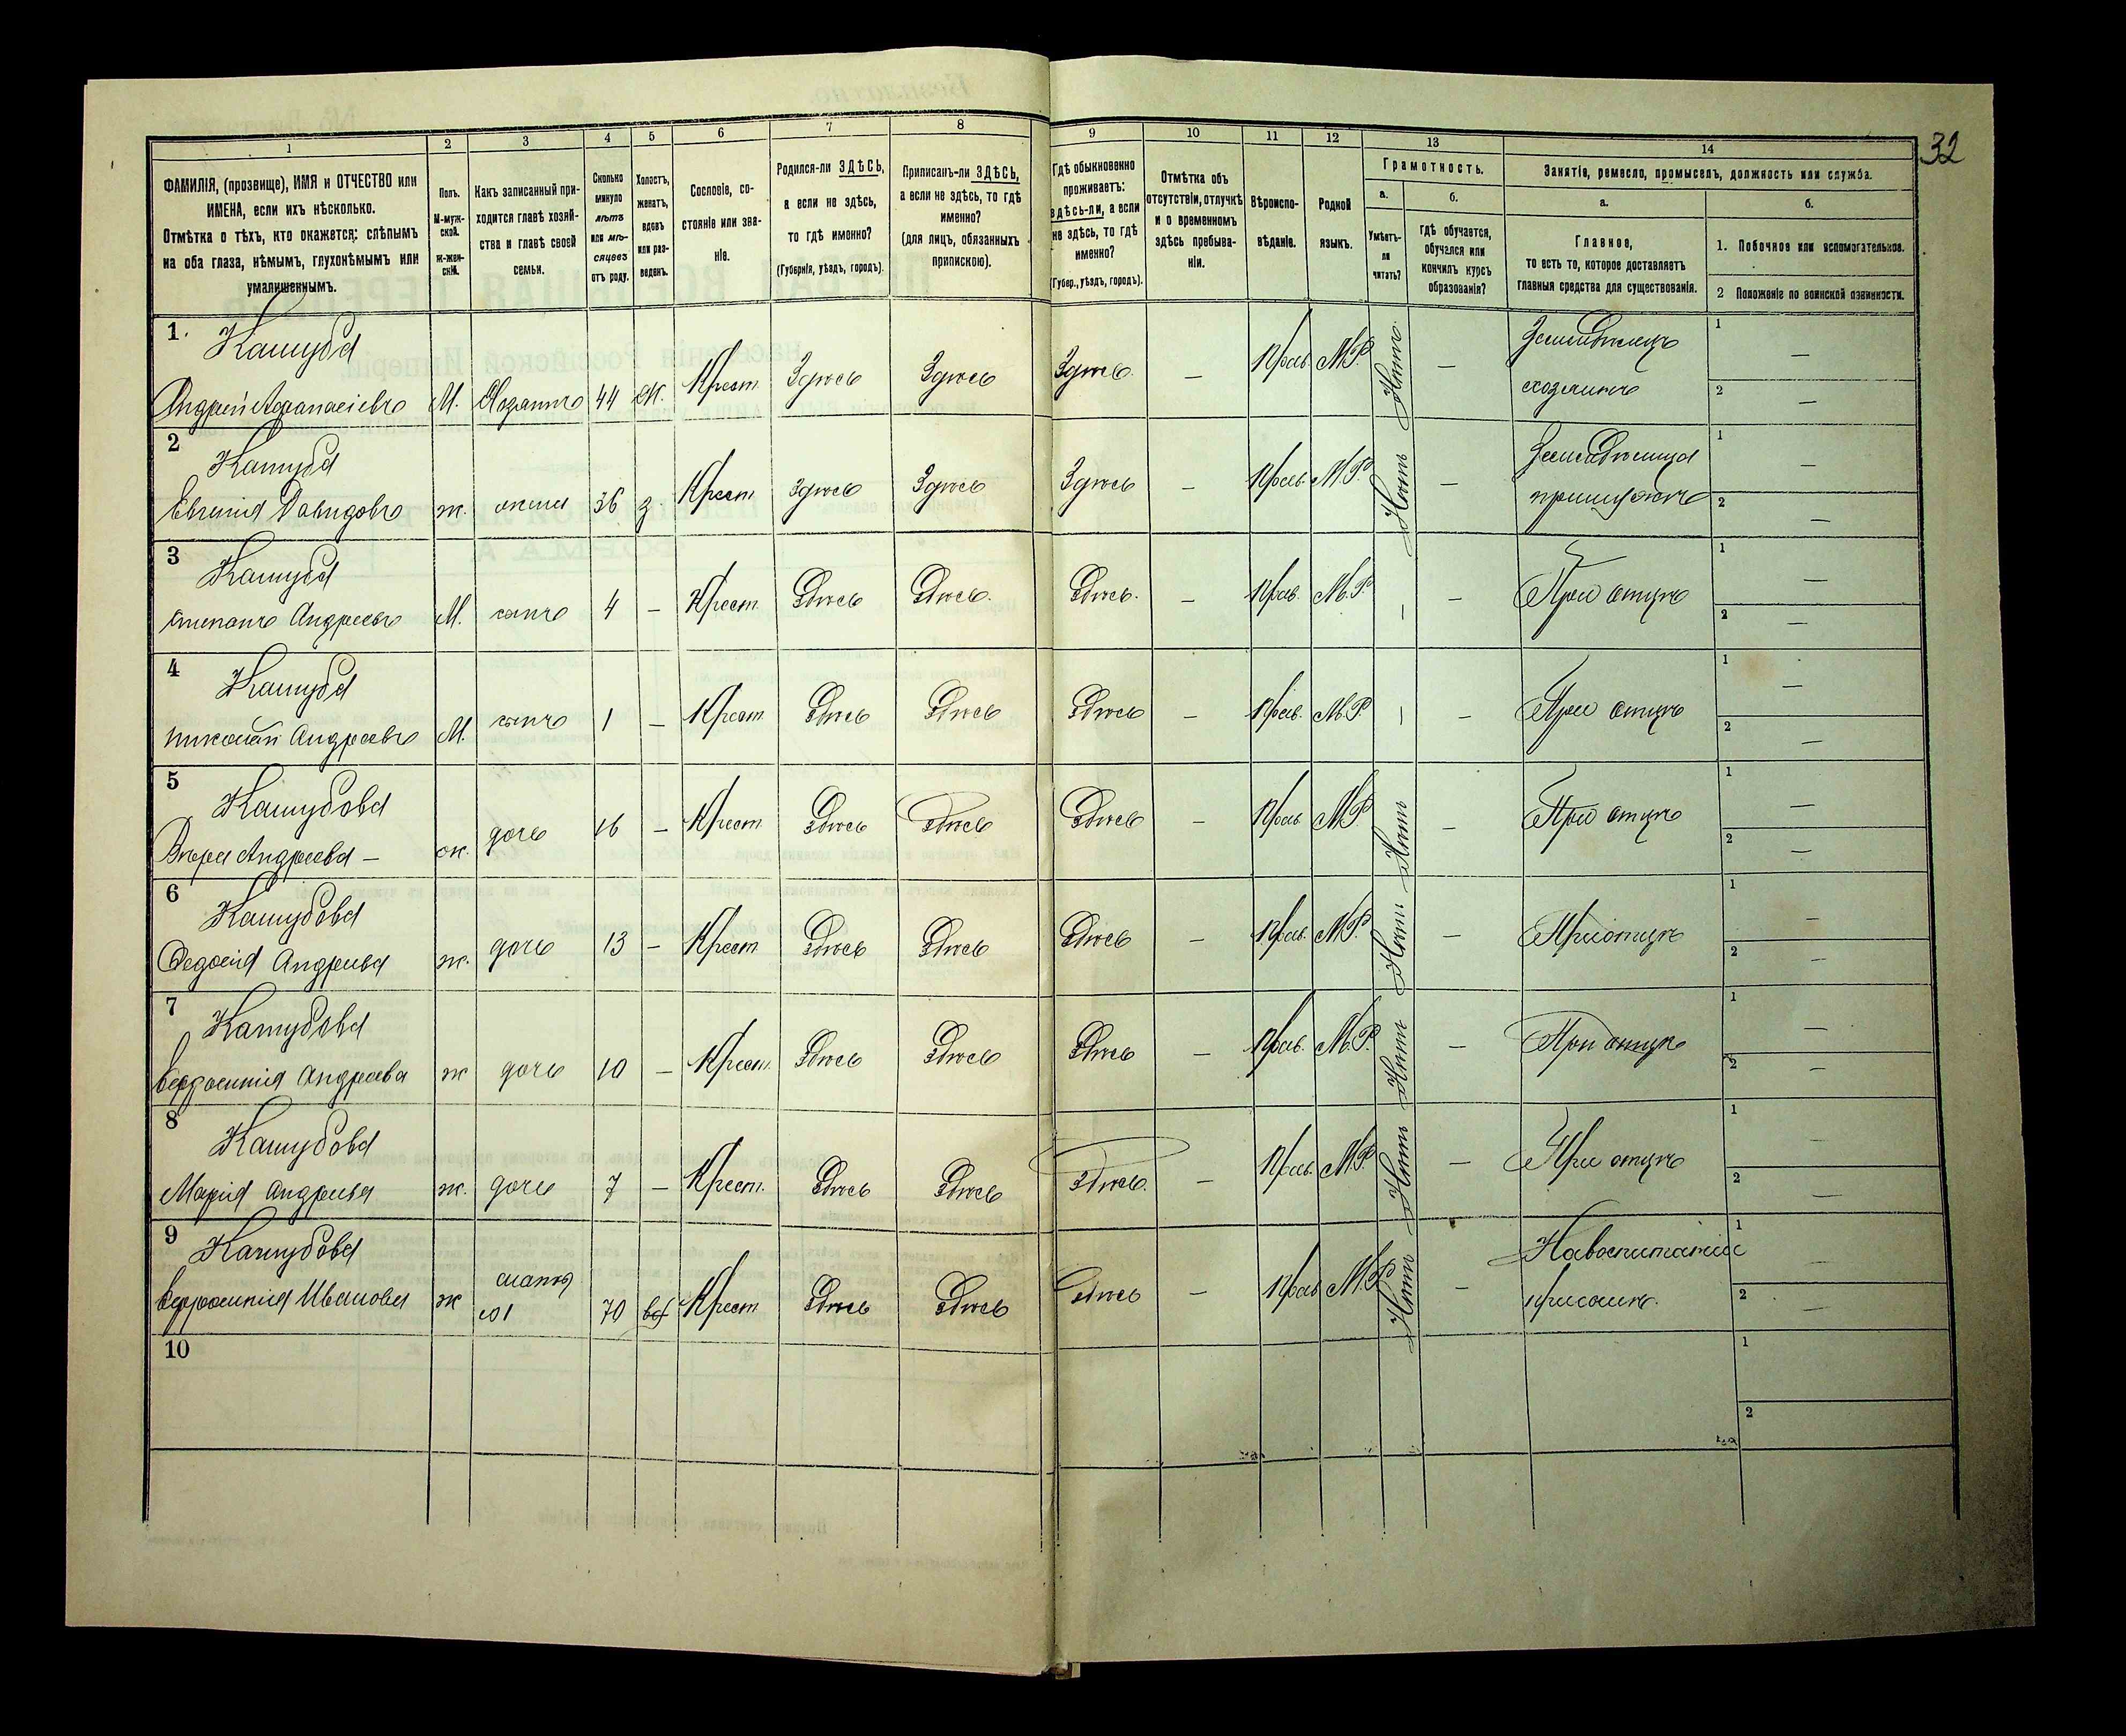 32
1 2 3 4 5 6 7 8 9 10 11 12 13 14
ФАМИЛІЯ, (прозвище), ИМЯ и ОТЧЕСТВО или
ИМЕНА, если ихъ нѣсколько.
Отмѣтка о тѣхъ, кто окажется: слѣпымъ
на оба глаза, нѣмымъ, глухонѣмымъ или
умалишеннымъ.
Полъ.
М-муж-
ской.
Ж-жен-
скій.
Какъ записанный при-
ходится главѣ хозяй-
ства и главѣ своей
семьи.
Сколько
минуло
лѣтъ
или мѣ-
сяцевъ
отъ роду.
Холостъ,
женатъ,
вдовъ
или раз-
веденъ.
Сословіе, со-
стояніе или зва-
ніе.
Родился-ли ЗДѢСЬ,
а если не здѣсь,
то гдѣ именно?
(Губернія, уѣздъ, городъ).
Приписанъ-ли ЗДѢСЬ,
а если не здѣсь, то гдѣ
именно?
(для лицъ, обязанныхъ
припискою).
Гдѣ обыкновенно
проживаетъ:
здѣсь-ли, а если
не здѣсь, то гдѣ
именно?
(Губер., уѣздъ, городъ).
Отмѣтка объ
отсутствіи, отлучкѣ
и о временномъ
здѣсь пребыва-
ніи.
Вѣроиспо-
вѣданіе.
Родной
языкъ.
Грамотность.
а.
Умѣетъ-
ли
читать?
б.
Гдѣ обучается,
обучался или
кончилъ курсъ
образованія?
Занятіе, ремесло, промыселъ, должность или служба.
а.
Главное,
то есть то, которое доставляетъ
главныя средства для существованія.
б.
1. Побочное или вспомогательное.
2 Положеніе по воинской повинности.
1. Кашуба Земледѣлецъ 1 —
Андрей Афанасіевъ М. Хозяинъ 44 Ж. Крест. Здѣсь Здѣсь Здѣсь — Прав. М.Р. Нѣтъ — хозяинъ 2 —
2 Кашуба Земледѣлица 1 —
Евгенія Давидовъ ж. жена 36 з. Крест Здѣсь Здѣсь Здѣсь — Прав. М.Р. Нѣтъ — 2 —
3 Кашуба 1 —
Степанъ Андреевъ М. сынъ 4 — Крест. Здѣсь Здѣсь. Здѣсь. — Прав. М.Р. — — При отцѣ 2 —
4 Кашуба 1 —
Николай Андреевъ М. сынъ 1 — Крест. Здѣсь Здѣсь Здѣсь — Прав. М.Р. — — При отцѣ 2 —
5 Кашубова 1 —
Вѣра Андреева — ж. дочь 16 — Крест. Здѣсь Здѣсь Здѣсь — Прав. М.Р. Нѣтъ — При отцѣ 2 —
6 Кашубова 1 —
Федосія Андреева ж. дочь 13 — Крест Здѣсь Здѣсь Здѣсь — Прав. М.Р. Нѣтъ — При отцѣ 2 —
7 Кашубова 1 —
Андреева ж дочь 10 — Крест. Здѣсь Здѣсь Здѣсь — Прав. М.Р. Нѣтъ — При отцѣ 2 —
8 Кашубова 1 —
Марія Андреева ж. дочь 7 — Крест. Здѣсь Здѣсь Здѣсь. — Прав. М.Р. Нѣтъ — При отцѣ 2 —
9 Кашубова 1
Иванова ж 70 вд Крест Здѣсь Здѣсь Здѣсь — Прав М.Р. Нѣтъ — 2 —
10 1
2